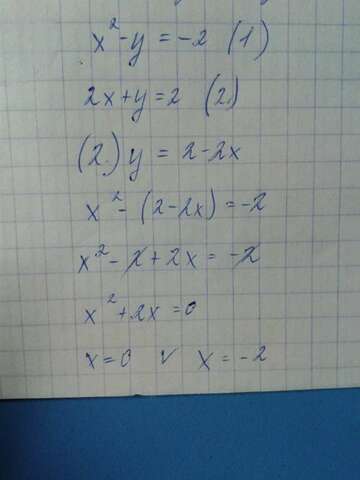 x² - y = -2 (1)
2x + y = 2 (2.)
(2.) y = 2 - 2x
x² - (2 - 2x) = -2
x² - 2 + 2x = -2
x² + 2x = 0
x = 0 v x = -2